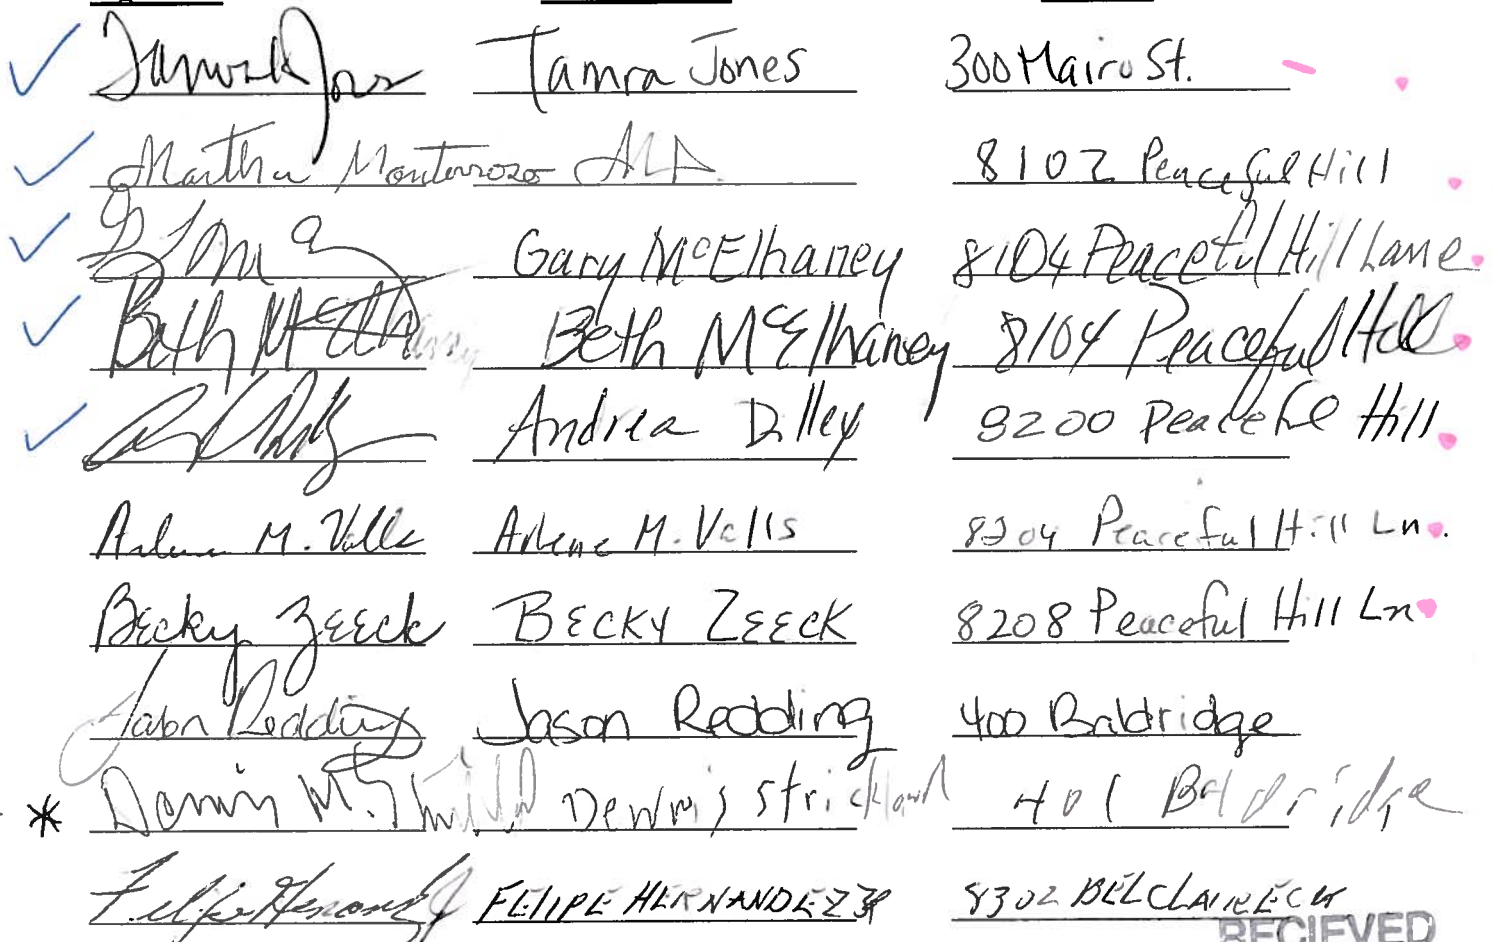 Tamra Jones 300 Mairo St.
Martha Monterrozo 8102 Peaceful Hill
Gary McElhaney 8104 Peaceful Hill Lane
Beth McElhaney Beth McElhaney 8104 Peaceful Hill
Andrea Dilley 8200 Peaceful Hill
Arlene M. Valls Arlene M. Valls 8204 Peaceful Hill Ln.
Becky Zeeck BECKY ZEECK 8208 Peaceful Hill Ln
Jason Redding Jason Redding 400 Baldridge
* Dennis Strickland 401 Baldridge
Felipe Hernandez Jr FELIPE HERNANDEZ JR 8302 BELCLAIRE
RECIEVED